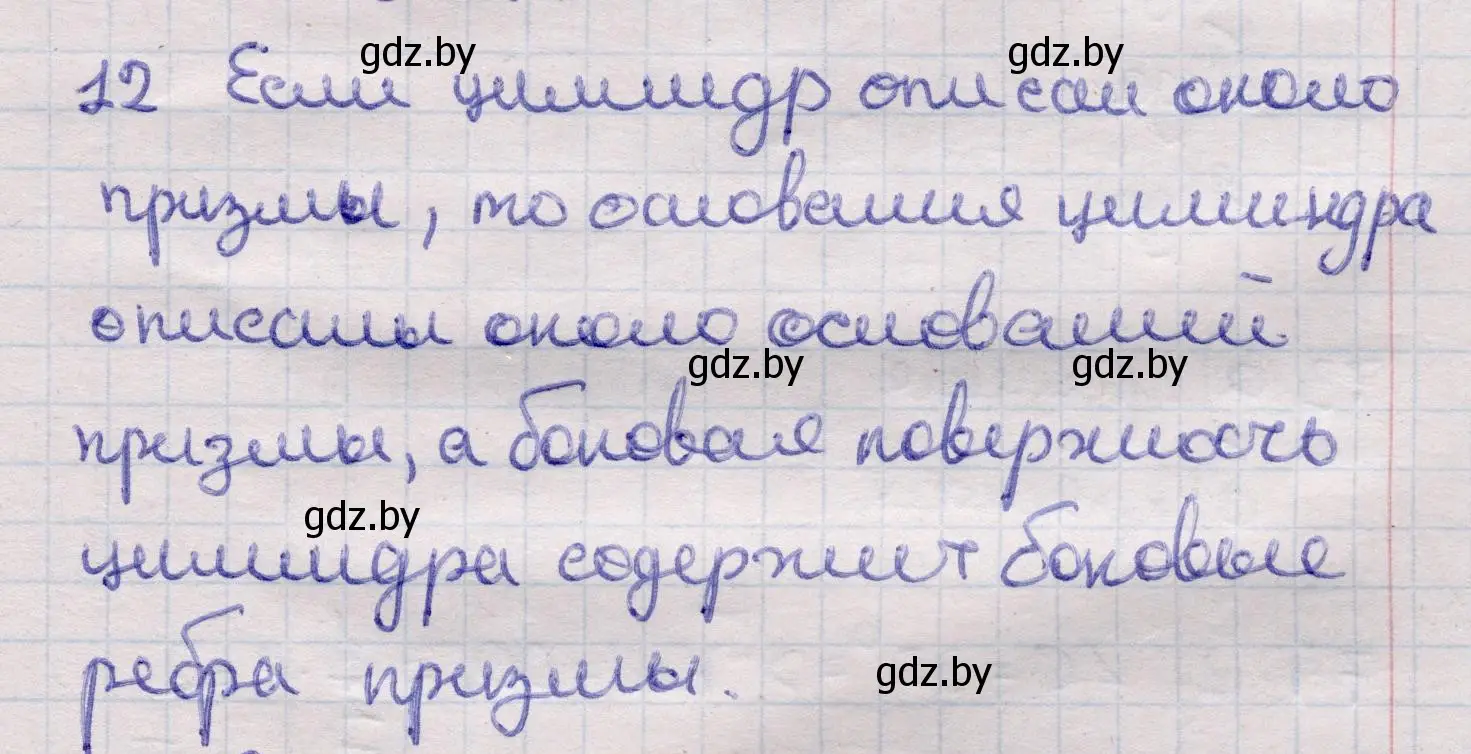 gdz.by gdz.by
12 Если цилиндр описан около
призмы, то основания цилиндра
описаны около оснований
gdz.by gdz.by
призмы, а боковая поверхность
gdz.by
цилиндра содержит боковые
ребра призмы.
gdz.by